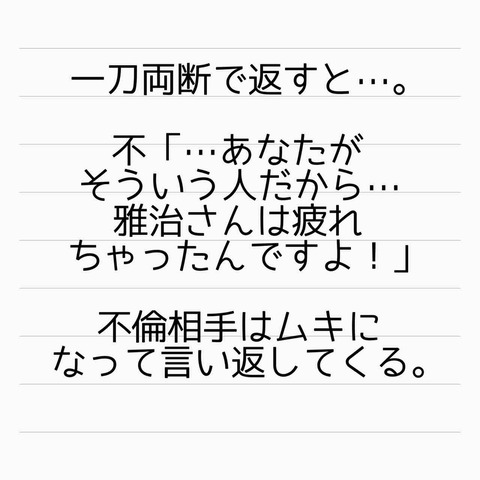 一刀両断で返すと…。
不「…あなたが
そういう人だから…
雅治さんは疲れ
ちゃったんですよ！」
不倫相手はムキに
なって言い返してくる。